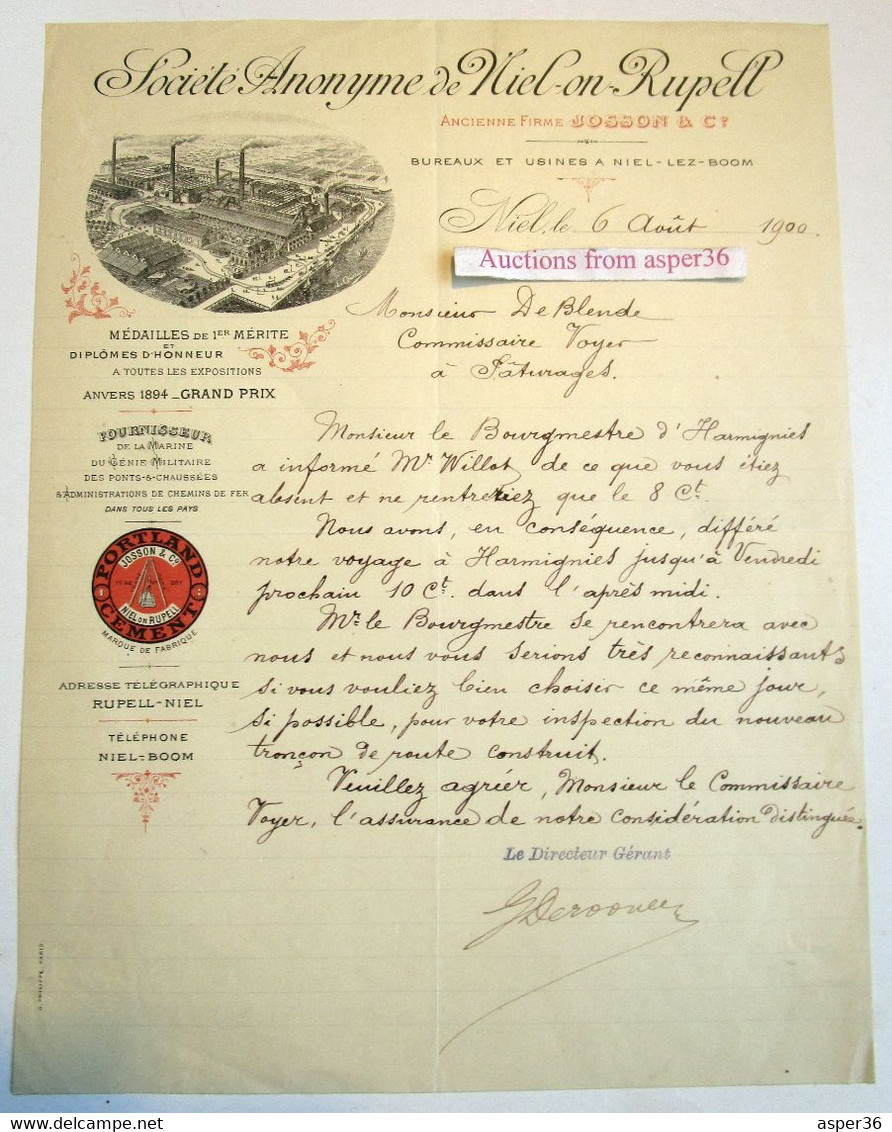 Société Anonyme de Niel-on-Rupell
ANCIENNE FIRME JOSSON & Cº
BUREAUX ET USINES A NIEL-LEZ-BOOM
Niel, le 6 Août 1900.
Auctions from asper36
MÉDAILLES DE 1ER MÉRITE
ET
DIPLÔMES D'HONNEUR
A TOUTES LES EXPOSITIONS
ANVERS 1894 _ GRAND PRIX
FOURNISSEUR
DE LA MARINE
DU GÉNIE MILITAIRE
DES PONTS-&-CHAUSSÉES
& ADMINISTRATIONS DE CHEMINS DE FER
DANS TOUS LES PAYS
PORTLAND
JOSSON & Cº
NIEL ON RUPELL
CEMENT
MARQUE DE FABRIQUE
ADRESSE TÉLÉGRAPHIQUE
RUPELL-NIEL
TÉLÉPHONE
NIEL-BOOM
Monsieur De Blende
Commissaire Voyer
à Pâturages.
Monsieur le Bourgmestre d'Harmignies
a informé Mr Willot de ce que vous étiez
absent et ne rentreriez que le 8 Ct.
Nous avons, en conséquence, différé
notre voyage à Harmignies jusqu'à Vendredi
prochain 10 Ct. dans l'après midi.
Mr le Bourgmestre se rencontrera avec
nous et nous vous serions très reconnaissants
si vous vouliez bien choisir ce même jour,
si possible, pour votre inspection du nouveau
tronçon de route construit.
Veuillez agréer, Monsieur le Commissaire
Voyer, l'assurance de notre considération distinguée.
Le Directeur Gérant
G. PHILIPPE, PARIS.
asper36